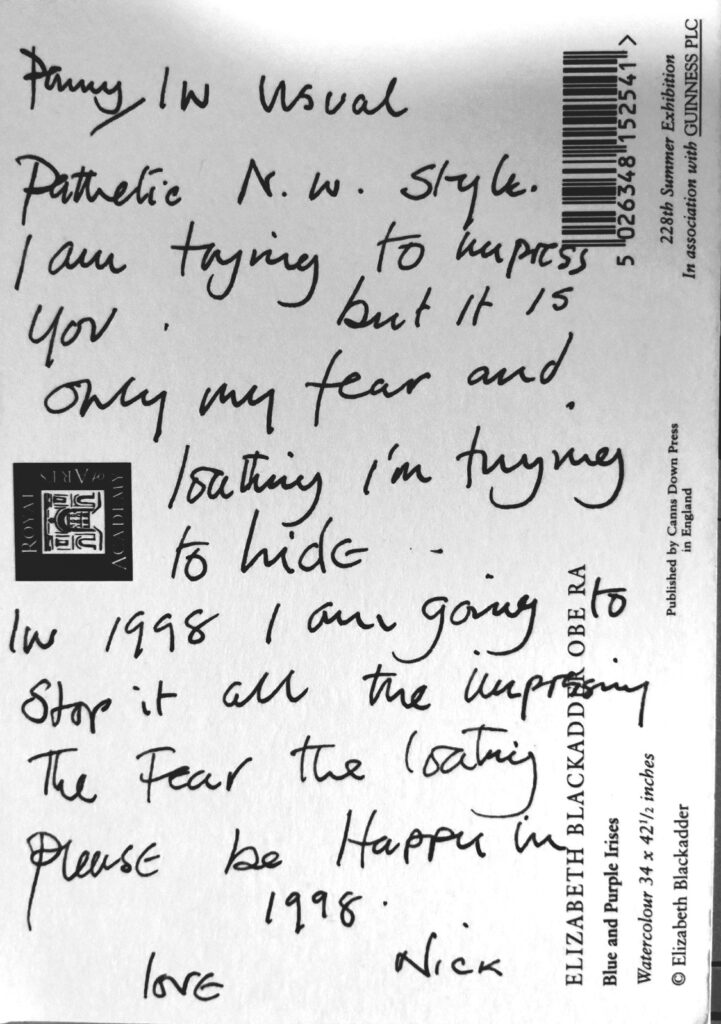 Panny, IN usual
Pathetic N.W. Style.
I am trying to impress
you. but it is
only my fear and
loathing I'm trying
to hide.
IN 1998 I am going to
Stop it all the impressing
The Fear the loathing
Please be Happy in
1998.
love Nick
ROYAL
ACADEMY
OF ARTS
5 026348 152541 >
228th Summer Exhibition
In association with GUINNESS PLC
Published by Canna Down Press
in England
ELIZABETH BLACKADDER OBE RA
Blue and Purple Irises
Watercolour 34 x 42½ inches
© Elizabeth Blackadder